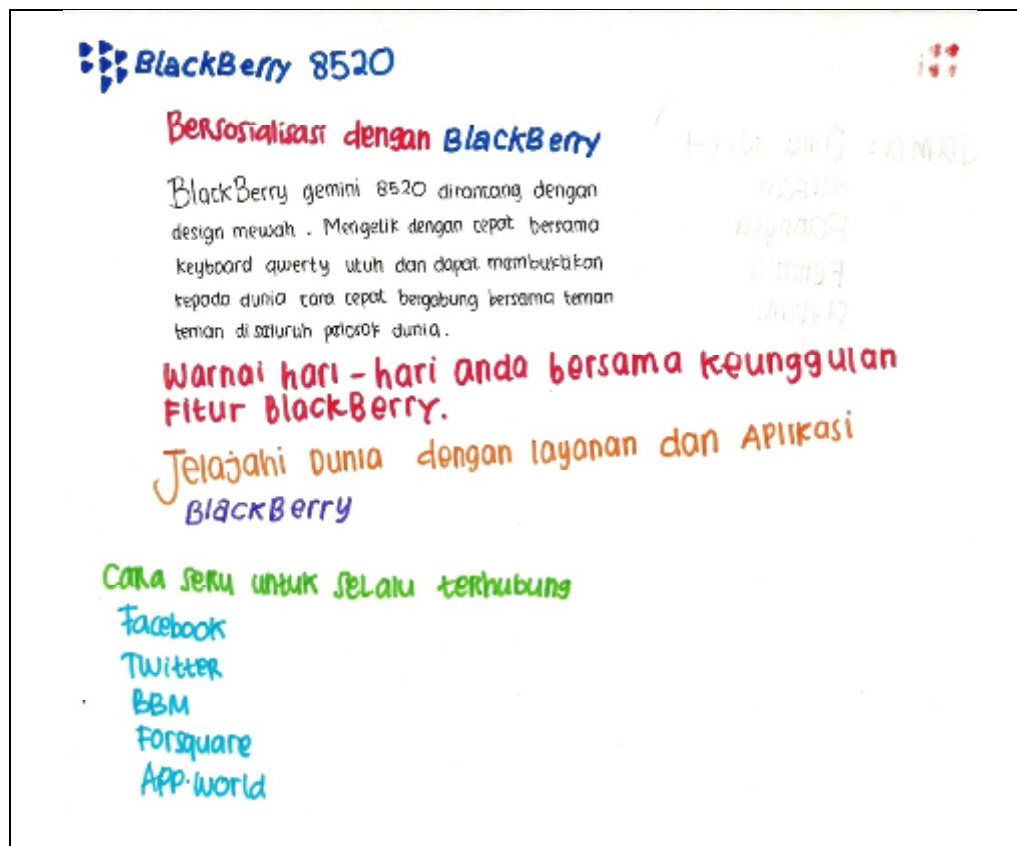 BlackBerry 8520
Bersosialisasi dengan BlackBerry
BlackBerry gemini 8520 dirancang dengan
design mewah . Mengetik dengan cepat bersama
keyboard qwerty utuh dan dapat membuktikan
kepada dunia cara cepat bergabung bersama teman
teman di seluruh pelosok dunia.
Warnai hari - hari anda bersama keunggulan
Fitur BlackBerry.
Jelajahi Dunia dengan layanan dan Aplikasi
BlackBerry
Cara seru untuk selalu terhubung
Facebook
Twitter
BBM
Forsquare
App.World